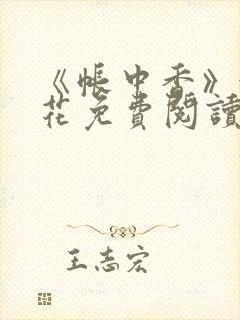 《帳中香》
花免費閱讀
王志宏